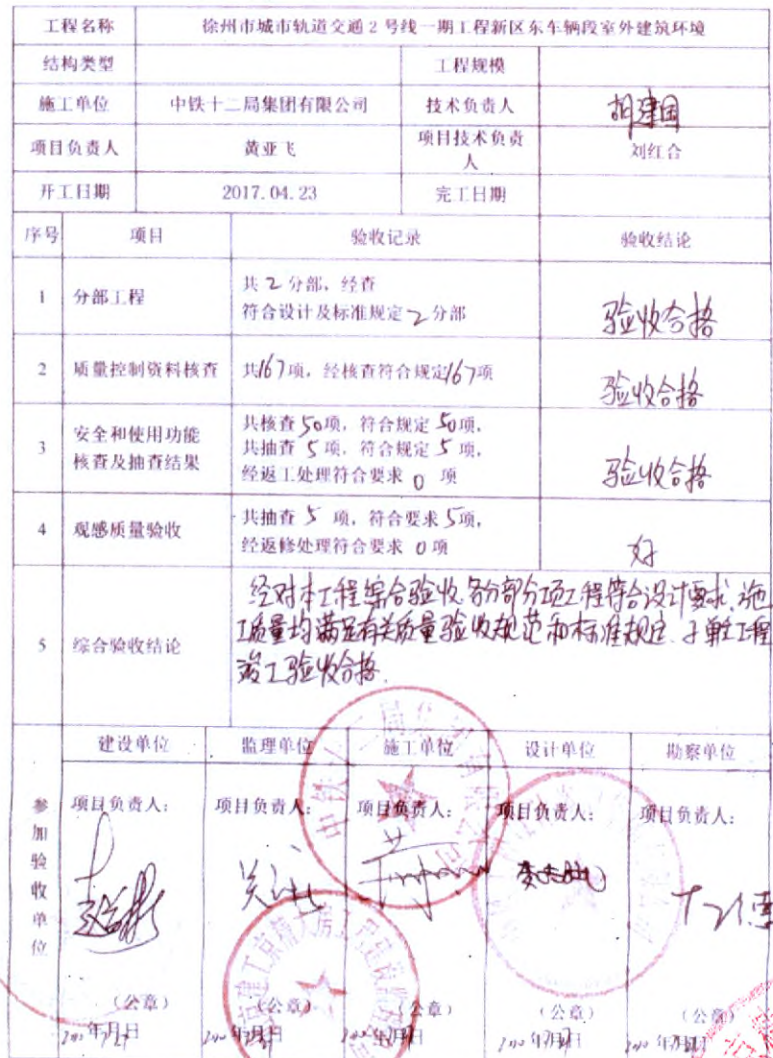 工程名称 徐州市城市轨道交通2号线一期工程新区东车辆段室外建筑环境
结构类型 工程规模
施工单位 中铁十二局集团有限公司 技术负责人 胡建国
项目负责人 黄亚飞 项目技术负责人 刘红合
开工日期 2017.04.23 完工日期
序号 项目 验收记录 验收结论
1 分部工程 共2分部，经查
符合设计及标准规定2分部 验收合格
2 质量控制资料核查 共167项，经核查符合规定167项 验收合格
3 安全和使用功能
核查及抽查结果
共核查50项，符合规定50项，
共抽查5项，符合规定5项，
经返工处理符合要求0项
验收合格
4 观感质量验收
共抽查5项，符合要求5项，
经返修处理符合要求0项
好
5 综合验收结论
经对本工程综合验收，各分部分项工程符合设计要求，施
工质量均满足有关质量验收规范和标准规定，子单位工程
竣工验收合格．
参加验收单位
建设单位 监理单位 施工单位 设计单位 勘察单位
项目负责人： 项目负责人： 项目负责人： 项目负责人： 项目负责人：
（公章） （公章） （公章） （公章） （公章）
年 月 日 年 月 日 年 月 日 年 月 日 年 月 日